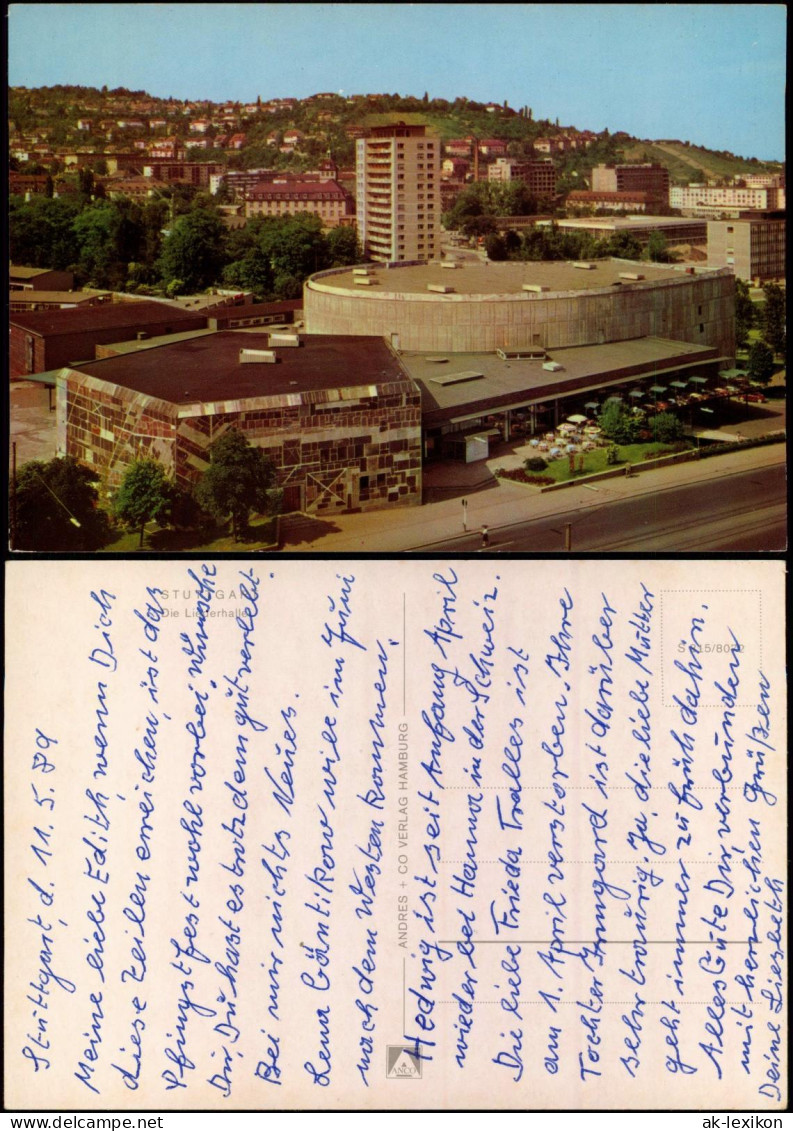 STUTTGART
Die Liederhalle
Stuttgart, d. 11. 5. 89
Meine liebe Edith, wenn Dich
diese Zeilen erreichen, ist das
Pfingstfest wohl vorbei. Wünsche
Dir, Du hast es trotzdem gut verlebt.
Bei mir nichts Neues.
Lena will im Juni
nach dem Westen kommen.
ANDRES + CO VERLAG HAMBURG
ANCO
Hedwig ist seit Anfang April
wieder bei Hanna in der Schweiz.
Die liebe Frieda Tralles ist
am 1. April verstorben. Ihre
Tochter Irmgard ist darüber
sehr traurig. Ja, die liebe Mutter
geht immer zu früh dahin.
Alles Gute Dir, verbunden
mit herzlichen Grüßen
Deine Liesbeth
ak-ansichtskarten.de
ak-lexikon